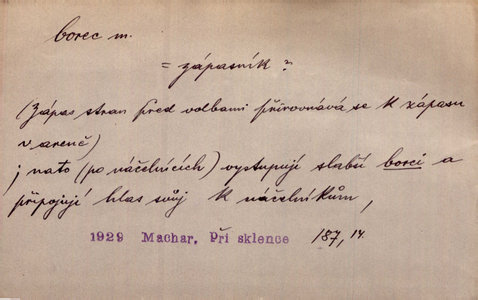 borec m.
= zápasník ?
(Zápas stran před volbami přirovnává se k zápasu
v areně)
; nato (po náčelnících) vystupují slabší borci a
připojují hlas svůj k náčelníkům,
1929 Machar, Při sklence 187, 14.